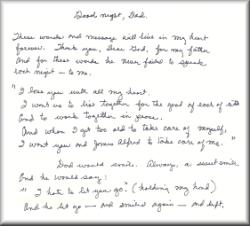 Good night, Dad.
These words and message will live in my heart
forever. Thank you, Dear God, for my father
And for these words he never failed to speak
each night — to me.
"I love you with all my heart.
I want us to live together for the good of each of us
And to work together in peace.
And when I get too old to take care of myself,
I want you and James Alfred to take care of me."
Dad would smile. Always, a sweet smile
And he would say:
"I hate to let you go." (holding my hand)
And he let go — and smiled again — and left.